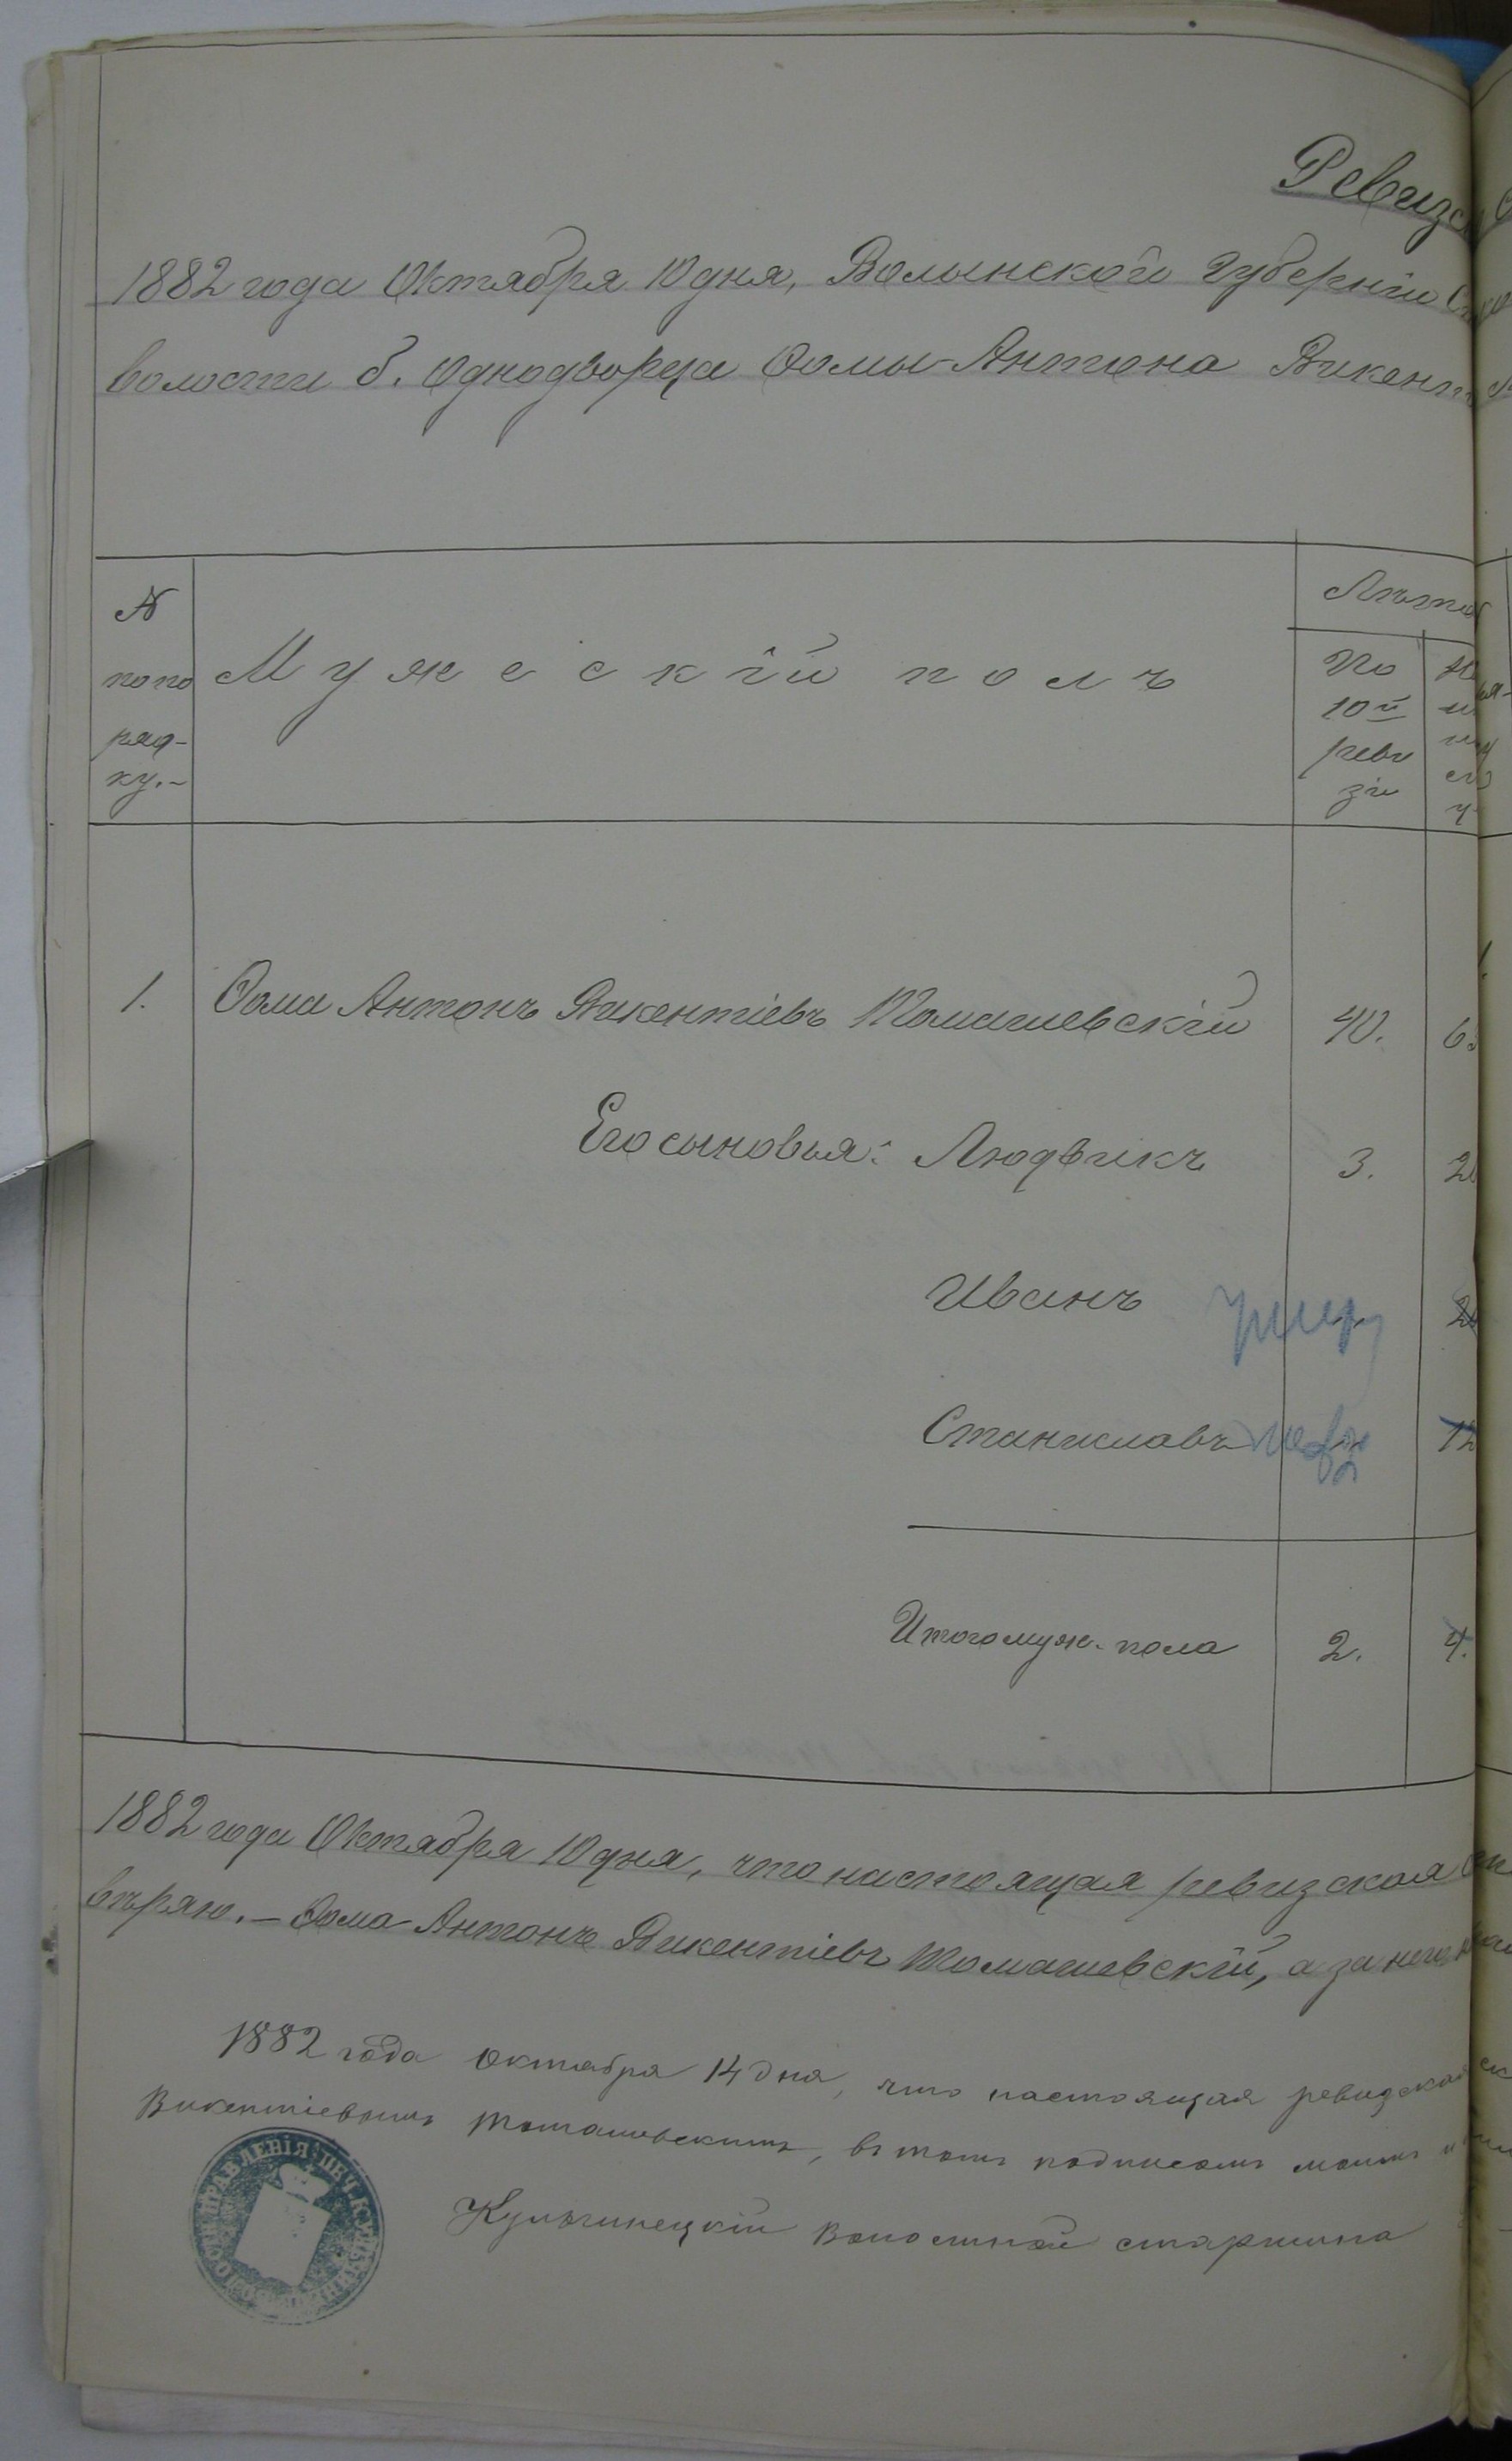 Ревизс
1882 года Октября 10 дня, Волынской Губерніи
волости б. Однодворца Ѳомы-Антона Викент
№ по по ряд- ку.-
Мужескій полъ
Лѣта
По 10й реви зіи
1. Ѳома Антонъ Викентіевъ Томашевскій 40. 63
Его сыновья: Людвикъ 3. 2
Иванъ 2
Станиславъ 12
Итого муж. пола 2. 4.
1882 года Октября 10 дня, что настоящая ревизская
вѣряю.- Ѳома-Антонъ Викентіевъ Томашевскій, а за него
1882 года Октября 14 дня, что настоящая ревизская
Викентіевымъ Томашевскимъ, въ томъ подписомъ моимъ и
Кульчинецкій Волостной старшина